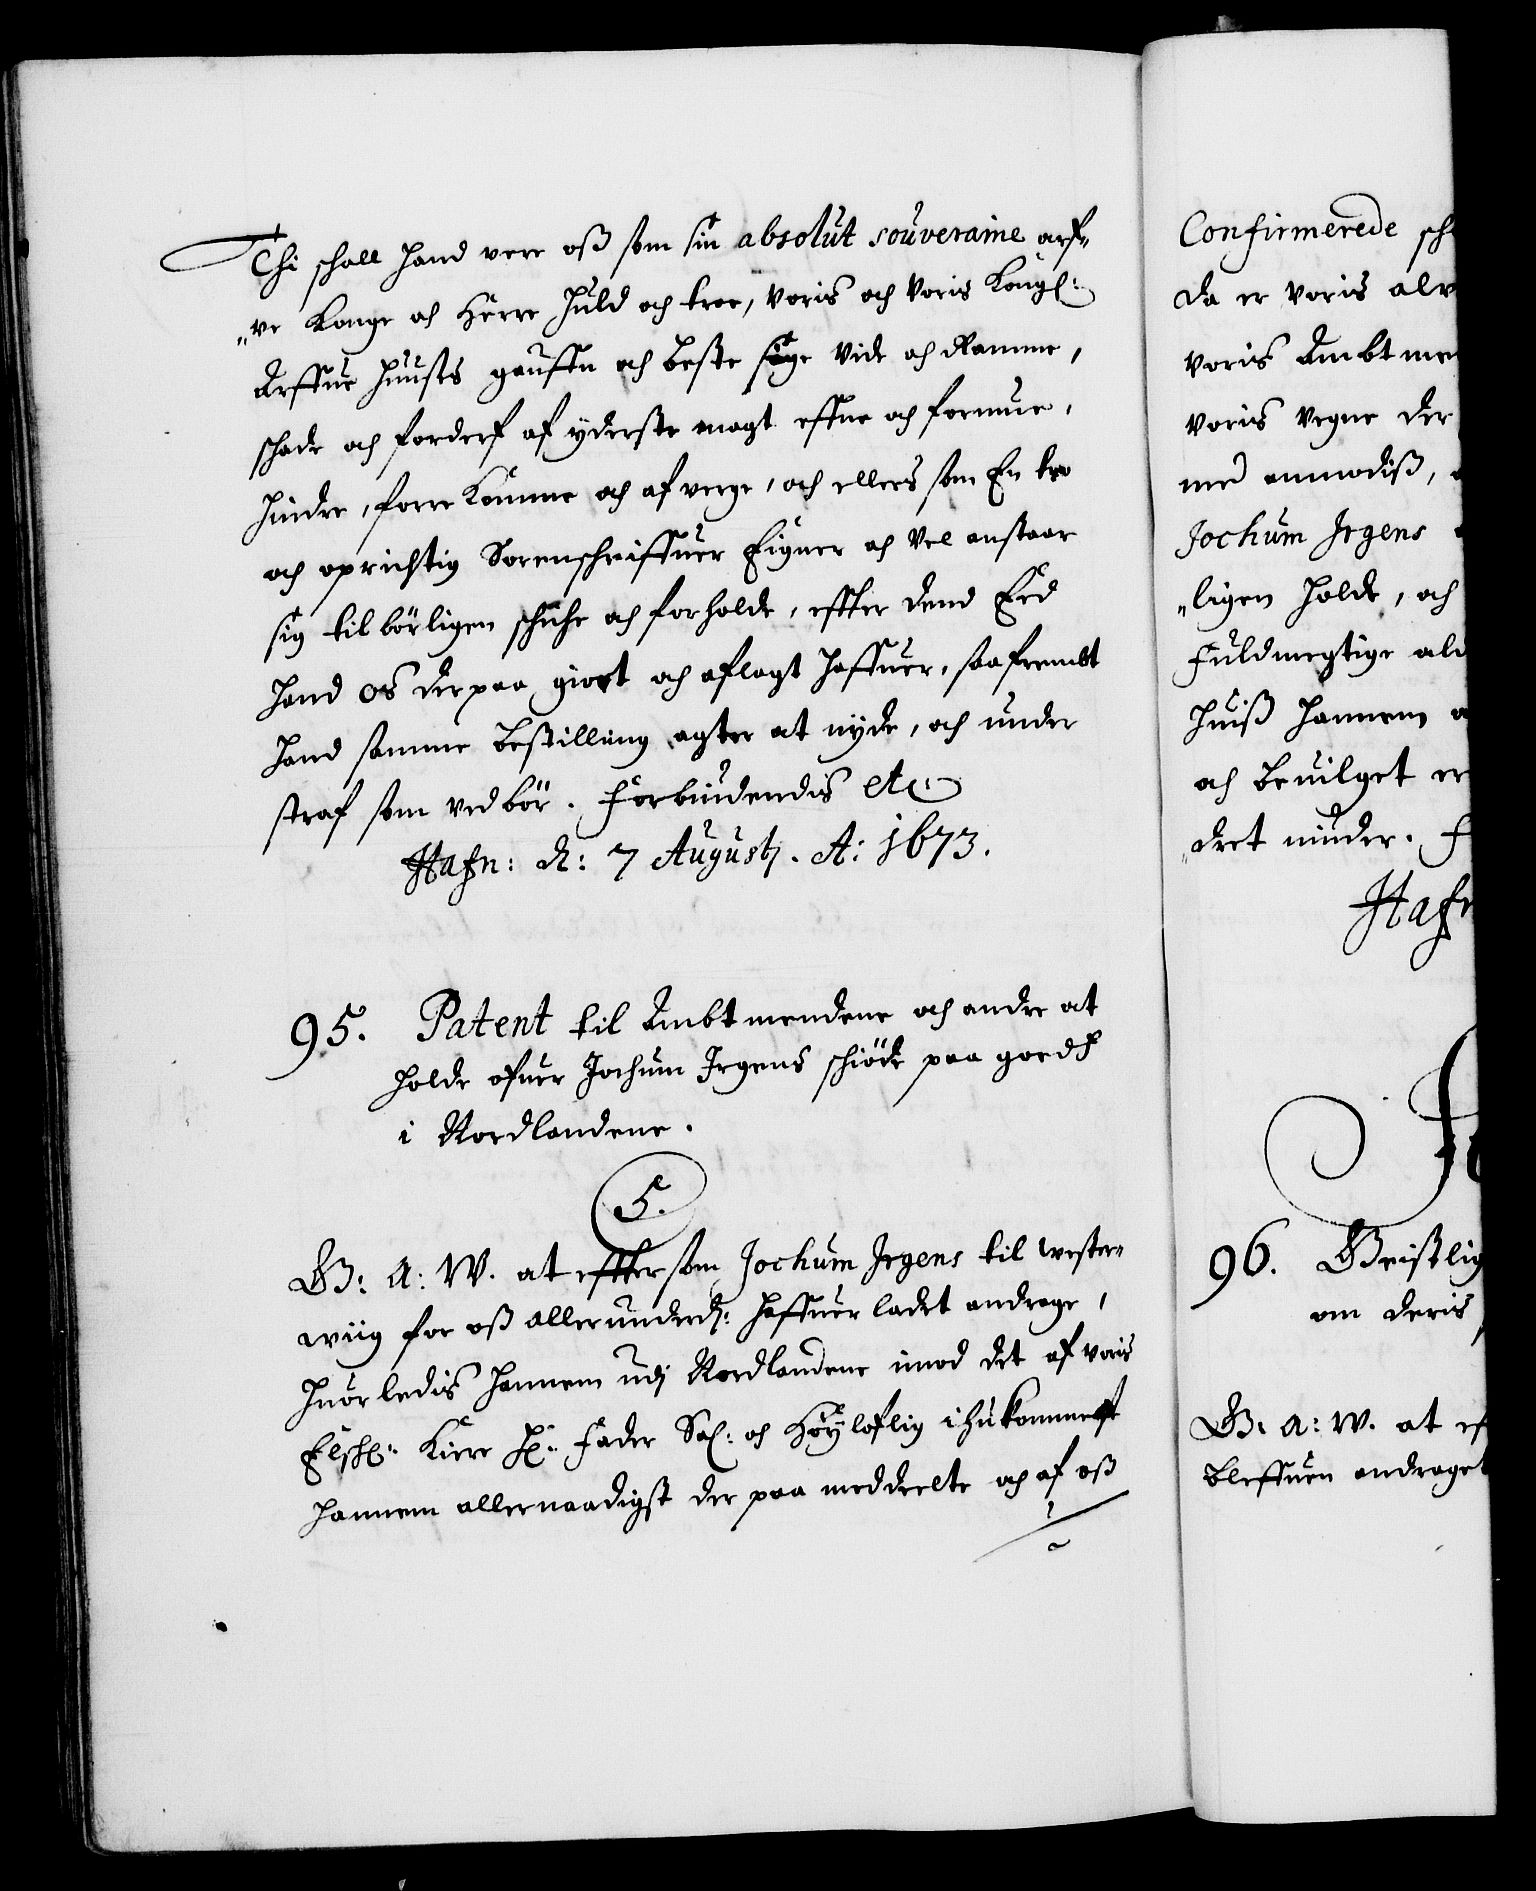 Thi schall hand vere oß som sin absolut souveraine arf„
„ve Konge och Herre huld och troe, voris och voris Kongl:
Arffue huusts gauffn och beste söge vide och Ramme,
schade och forderf af yderste magt effne och formue,
hindre, forre Komme och af verge, och ellers som En tro
och oprichtig Sorenschriffuer Eigner och Vel anstaar
sig tilbörligen schiche och forholde, effter dend Eed
hand os derpaa giort och aflagt haffuer, saafrembt
hand samme bestilling agter at nyde, och under
straf som vedbör. Forbiudendis etc
Hafn: d: 7 Augustj. A: 1673.
95. Patent til Ambtmendene och andre at
holde ofuer Jochum Irgens schiöde paa goeds
i Nordlandene.
5.
G: A: W. at efftersom Jochum Irgens til Wester„
wiig for oß allerunderd: haffuer ladet andrage,
huorledis hannem udj Nordlandene imod det af voris
Elschl: Kiere Hr: Fader Sal: och Höylofflig ihukommelse
hannem allernaadigst der paa meddeelte och af oß
Confirmerede sch
da er voris alv
voris Ambtmen
voris vegne der
med anmodiß,
Jochum Irgens
„ligen holde, och
Fuldmegtige ald
huiß hannem
och bevilget er
„dret minder. F
Hafn
96. Geistlig
om deris
G: A: W. at ef
bleffuen andraget